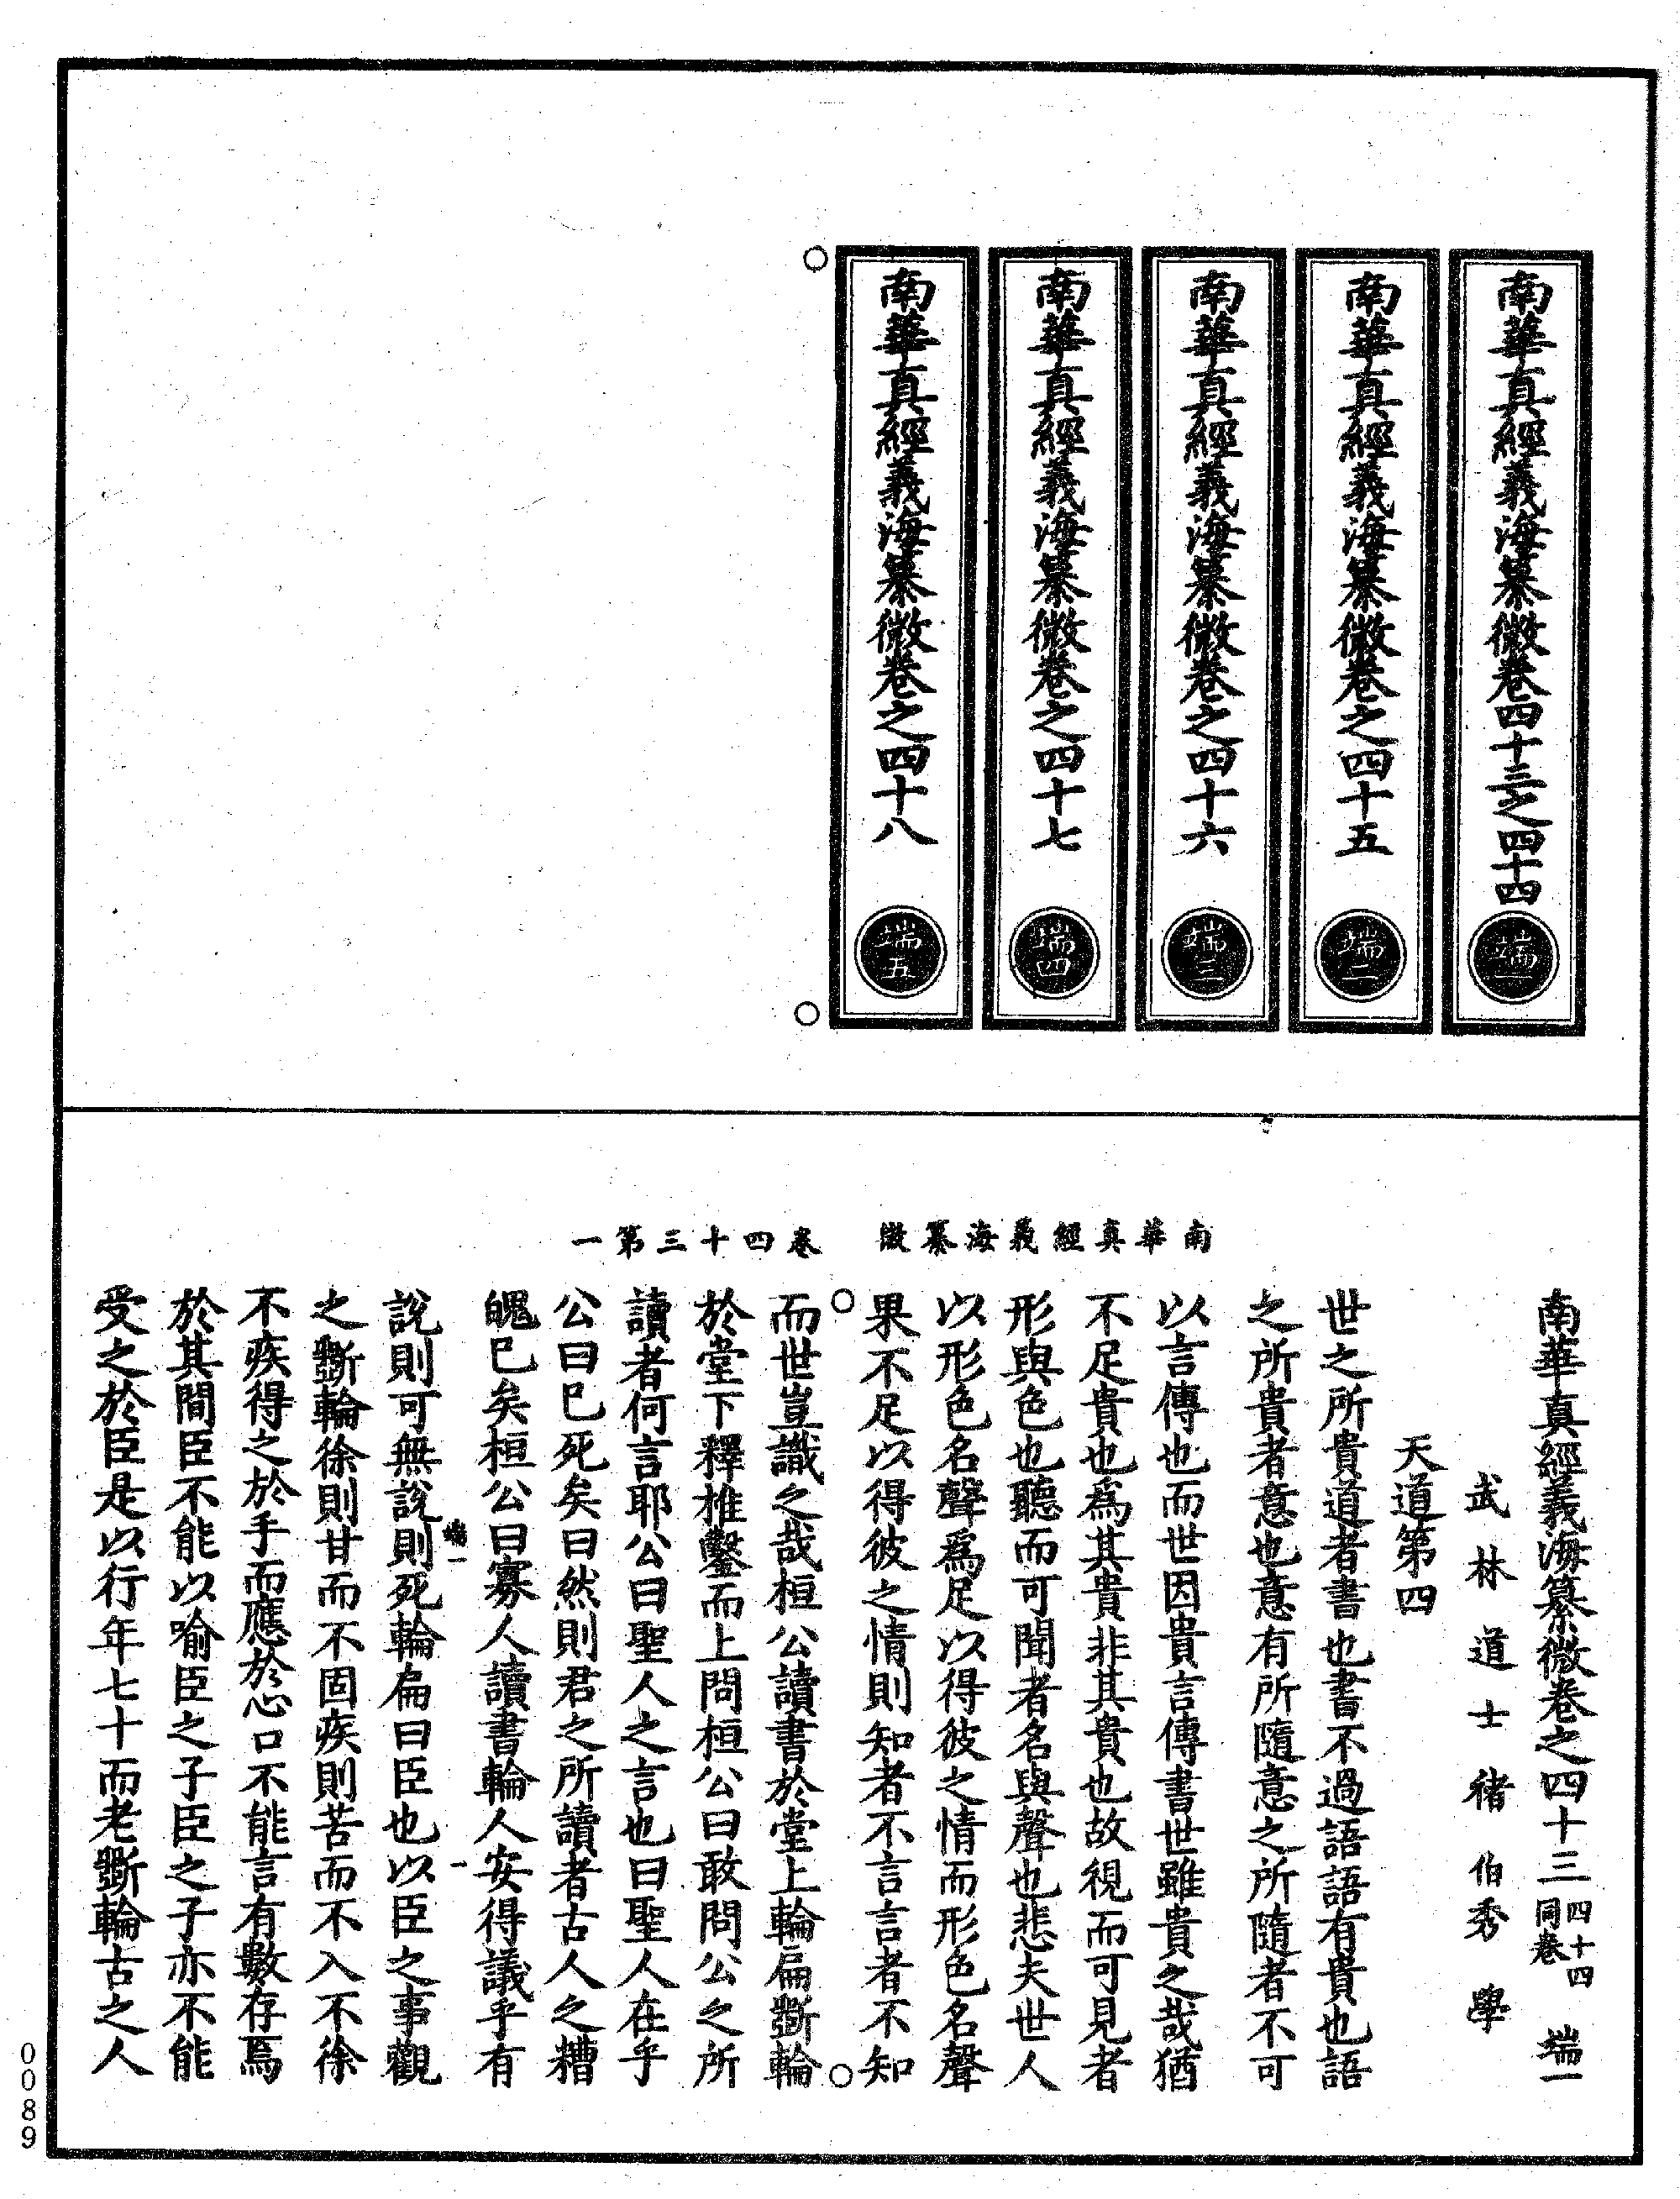 南華真經義海纂微卷四十三之四十四 端一
南華真經義海纂微卷之四十五 端二
南華真經義海纂微卷之四十六 端三
南華真經義海纂微卷之四十七 端四
南華真經義海纂微卷之四十八 端五
南華真經義海纂微 卷四十三第一
南華真經義海纂微卷之四十三 四十四同卷 端一
武林道士褚伯秀學
天道第四
世之所貴道者書也書不過語語有貴也語
之所貴者意也意有所隨意之所隨者不可
以言傳也而世因貴言傳書世雖貴之哉猶
不足貴也為其貴非其貴也故視而可見者
形與色也聽而可聞者名與聲也悲夫世人
以形色名聲為足以得彼之情而形色名聲
果不足以得彼之情則知者不言言者不知
而世豈識之哉桓公讀書於堂上輪扁斲輪
於堂下釋椎鑿而上問桓公曰敢問公之所
讀者何言耶公曰聖人之言也曰聖人在乎
公曰已死矣曰然則君之所讀者古人之糟
魄已矣桓公曰寡人讀書輪人安得議乎有
端一 一
說則可無說則死輪扁曰臣也以臣之事觀
之斲輪徐則甘而不固疾則苦而不入不徐
不疾得之於手而應於心口不能言有數存焉
於其間臣不能以喻臣之子臣之子亦不能
受之於臣是以行年七十而老斲輪古之人
0089